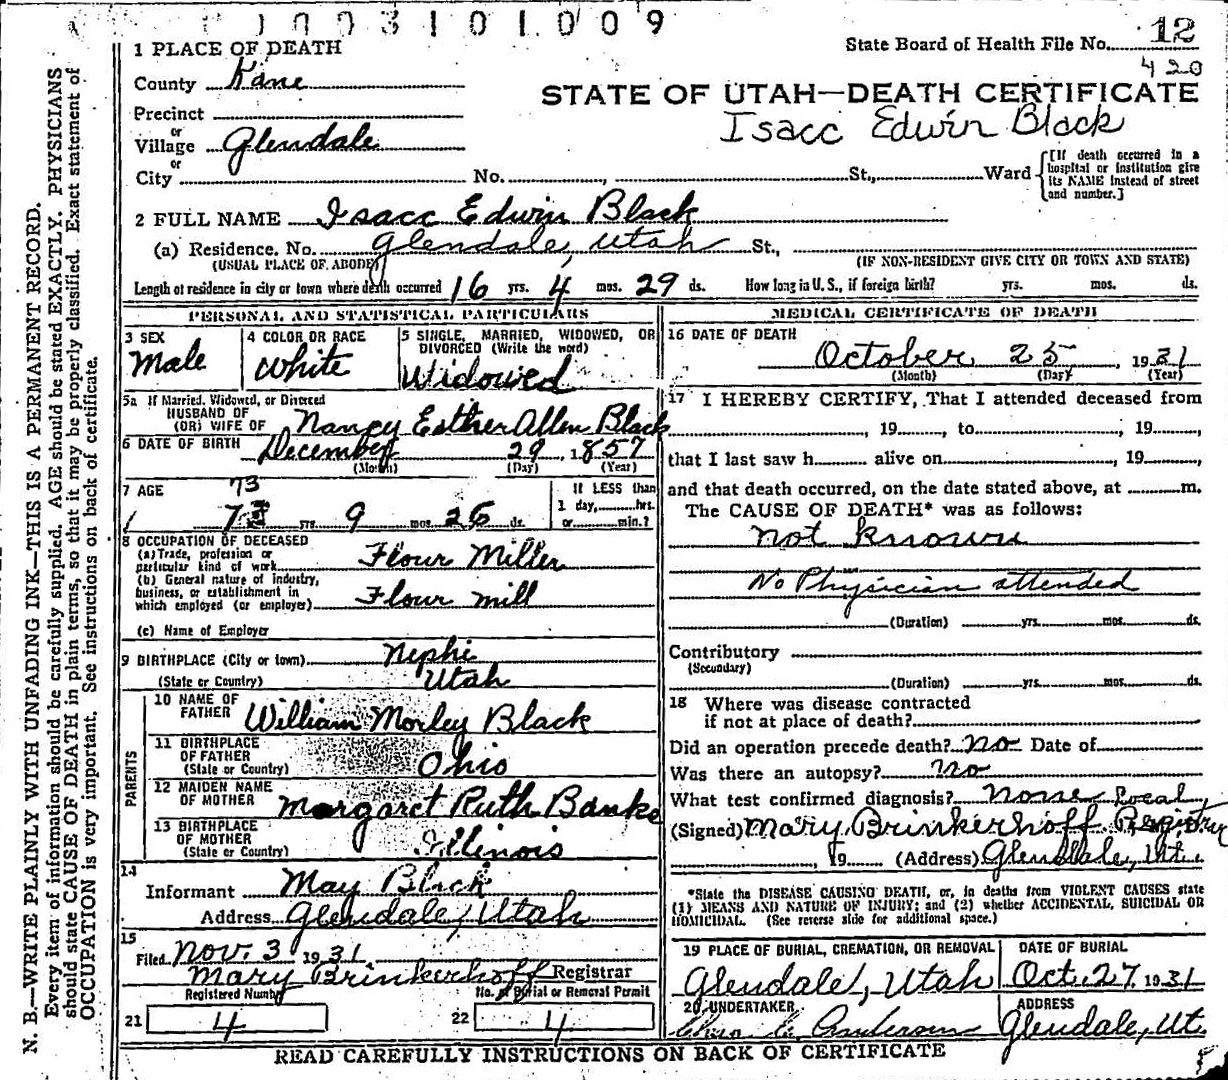 1003101009
1 PLACE OF DEATH
State Board of Health File No. 12
420
County Kane
STATE OF UTAH—DEATH CERTIFICATE
Precinct
Isacc Edwin Black
or
Village Glendale
or
City No. , St., Ward
[If death occurred in a hospital or institution give its NAME instead of street and number.]
2 FULL NAME Isacc Edwin Black
(a) Residence. No. Glendale, Utah St.,
(USUAL PLACE OF ABODE) (IF NON-RESIDENT GIVE CITY OR TOWN AND STATE)
Length of residence in city or town where death occurred 16 yrs. 4 mos. 29 ds. How long in U. S., if foreign birth? yrs. mos. ds.
PERSONAL AND STATISTICAL PARTICULARS
3 SEX
Male
4 COLOR OR RACE
White
5 SINGLE, MARRIED, WIDOWED, OR
DIVORCED (Write the word)
Widowed
5a If Married, Widowed, or Divorced
HUSBAND OF
(OR) WIFE OF Nancy Esther Allen Black
6 DATE OF BIRTH December 29, 1857
(Month) (Day) (Year)
7 AGE 73
yrs. 9 mos. 26 ds.
If LESS than
1 day, hrs.
or min.?
8 OCCUPATION OF DECEASED
(a) Trade, profession or
particular kind of work Flour Miller
(b) General nature of industry,
business, or establishment in
which employed (or employer) Flour mill
(c) Name of Employer
9 BIRTHPLACE (City or town) Nephi
(State or Country) Utah
PARENTS
10 NAME OF
FATHER William Morley Black
11 BIRTHPLACE
OF FATHER
(State or Country) Ohio
12 MAIDEN NAME
OF MOTHER Margaret Ruth Banks
13 BIRTHPLACE
OF MOTHER
(State or Country) Illinois
14
Informant May Black
Address Glendale, Utah
15
Filed Nov. 3 1931
Mary Brinkerhoff Registrar
Registered Number No. of Burial or Removal Permit
21 4 22 4
MEDICAL CERTIFICATE OF DEATH
16 DATE OF DEATH
October 25, 1931
(Month) (Day) (Year)
17 I HEREBY CERTIFY, That I attended deceased from
, 19 , to , 19 ,
that I last saw h alive on , 19 ,
and that death occurred, on the date stated above, at m.
The CAUSE OF DEATH* was as follows:
not known
No Physician attended
(Duration) yrs. mos. ds.
Contributory
(Secondary)
(Duration) yrs. mos. ds.
18 Where was disease contracted
if not at place of death?
Did an operation precede death? no Date of
Was there an autopsy? no
What test confirmed diagnosis? none Local
(Signed) Mary Brinkerhoff
, 19 (Address) Glendale, Ut.
*State the DISEASE CAUSING DEATH, or, in deaths from VIOLENT CAUSES state
(1) MEANS AND NATURE OF INJURY; and (2) whether ACCIDENTAL, SUICIDAL OR
HOMICIDAL. (See reverse side for additional space.)
19 PLACE OF BURIAL, CREMATION, OR REMOVAL
Glendale, Utah
DATE OF BURIAL
Oct. 27, 1931
20 UNDERTAKER
Anderson
ADDRESS
Glendale, Ut.
READ CAREFULLY INSTRUCTIONS ON BACK OF CERTIFICATE
N. B.—WRITE PLAINLY WITH UNFADING INK—THIS IS A PERMANENT RECORD.
Every item of information should be carefully supplied. AGE should be stated EXACTLY. PHYSICIANS
should state CAUSE OF DEATH in plain terms, so that it may be properly classified. Exact statement of
OCCUPATION is very important. See instructions on back of certificate.